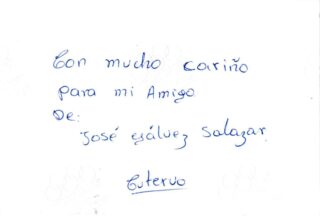 Con mucho cariño
para mi Amigo
De:
José Gálvez Salazar.
Cutervo